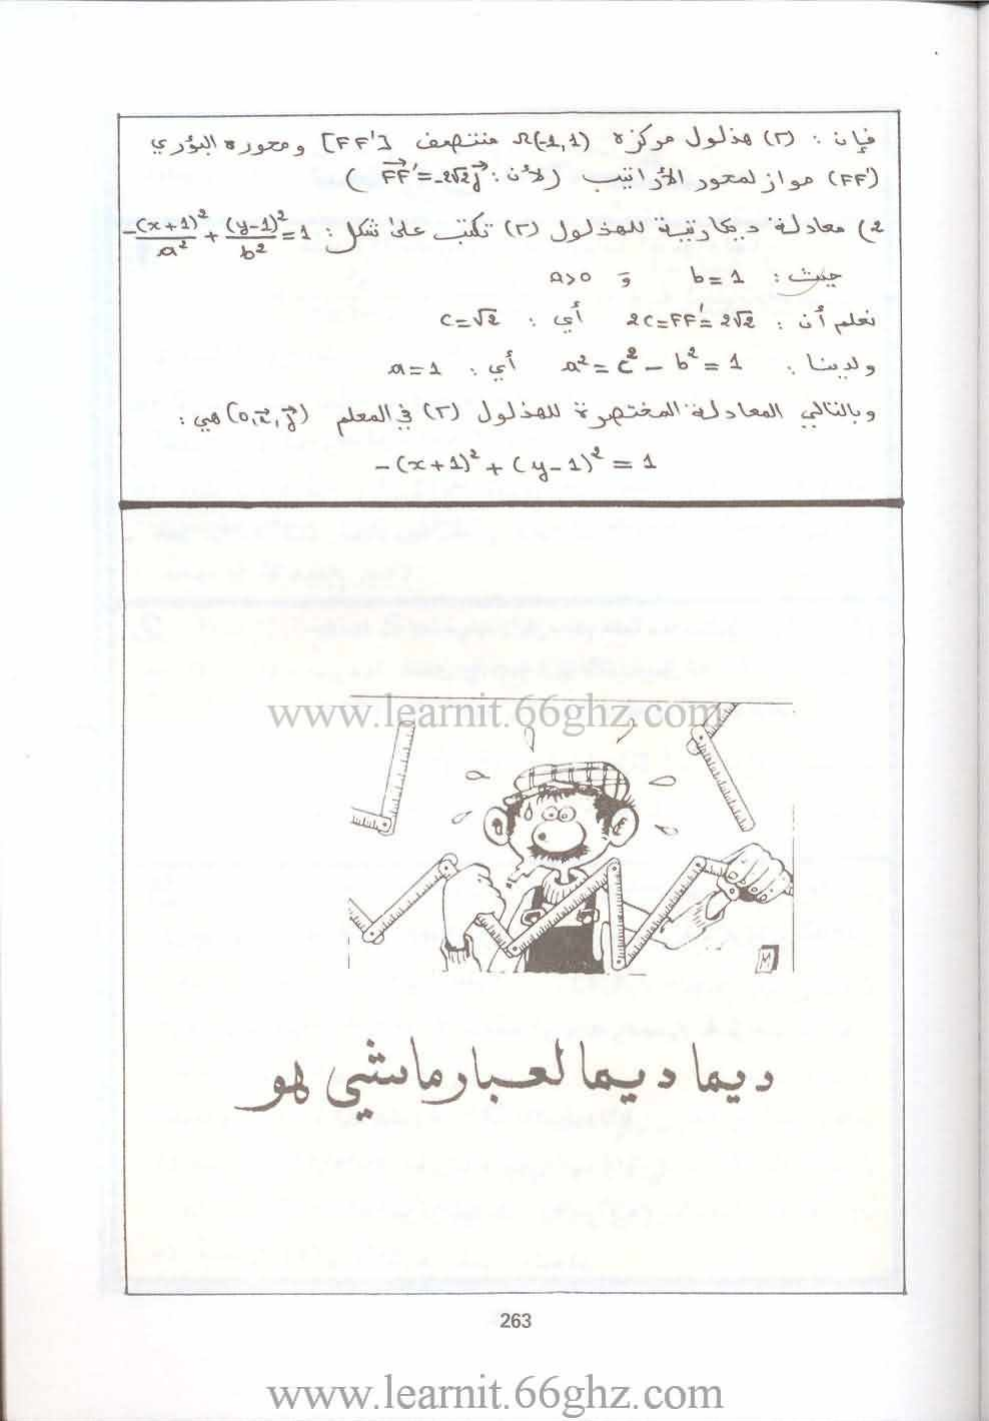 فإن : (Γ) هذلول مركزه Ω(-1,1) منتصف [FF'] ومحوره البؤري
(FF') مواز لمحور الأراتيب (لأن : \vec{FF'}=-2√2\vec{j})
2) معادلة ديكارتية للهذلول (Γ) تكتب على شكل : -\frac{(x+1)^2}{a^2}+\frac{(y-1)^2}{b^2}=1
حيث : b=1 و a>0
نعلم أن : 2c=FF'=2√2 أي : c=√2
ولدينا : a²=c²-b²=1 أي : a=1
وبالتالي المعادلة المختصرة للهذلول (Γ) في المعلم (o,\vec{i},\vec{j}) هي :
-(x+1)²+(y-1)²=1
www.learnit.66ghz.com
M
ديما ديما لعبار ماشي هو
263
www.learnit.66ghz.com